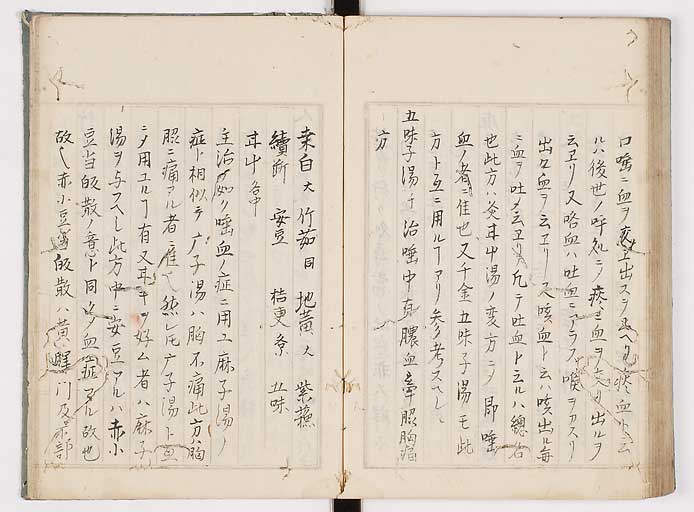 口唾ニ血ヲ交エ出スヲ云ヘリ痰血ト云
ハ後世ノ呼処ニテ痰ニ血ヲ交ヘ出ルヲ
云ヱリ又咯血ハ吐血ニアラス喉ヲカスリ
出ル血ヲ云ヱリ又咳血ト云ハ咳出ル毎
ニ血ヲ吐ヲ云ヱリ凡テ吐血ト云ルハ總名
也此方ハ炙甘中湯ノ変方ニテ即唾
血ノ者ニ佳也又千金五味子湯モ此
方ト互ニ用ルヿアリ参考スヘシ
五味子湯 治唾中有膿血牽胸脇痛
方
桑白大 竹茹同 地黄大 紫蘓
續断 安豆 桔更余 五味
甘中
主治ノ如ク唾血ノ症ニ用ユ麻子湯ノ
症ト相似テ广子湯ハ胸不痛此方ハ胸
脇ニ痛アル者ニ佳也然レ𪜈广子湯ト互
ニ用ユルヿ有又甘キヲ好ム者ハ麻子
湯ヲ与スヘシ此方中ニ安豆アルハ赤小
豆当皈散ノ意ト同ク血症アル故也
故ニ赤小豆當皈散ハ黄疸門及